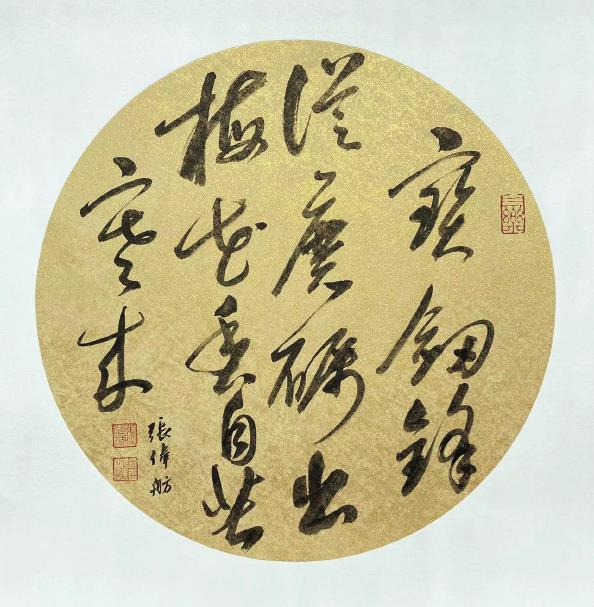 寶劍鋒
從磨礪出
梅花香自苦
寒來
張偉舫